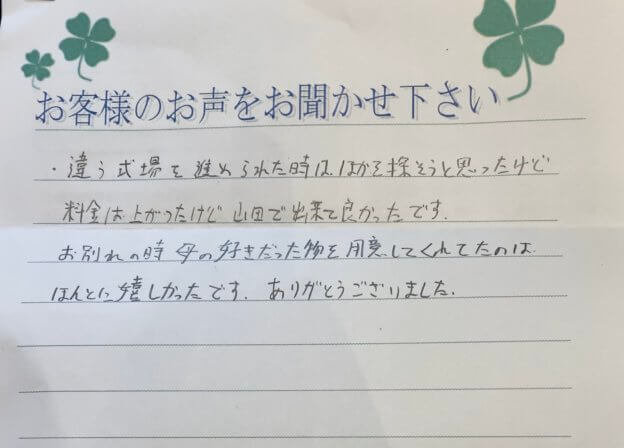 お客様のお声をお聞かせ下さい
・違う式場を進められた時は、ほかを探そうと思ったけど
料金は上がったけど山田で出来て良かったです.
お別れの時母の好きだった物を用意してくれてたのは
ほんとに嬉しかったです. ありがとうございました.